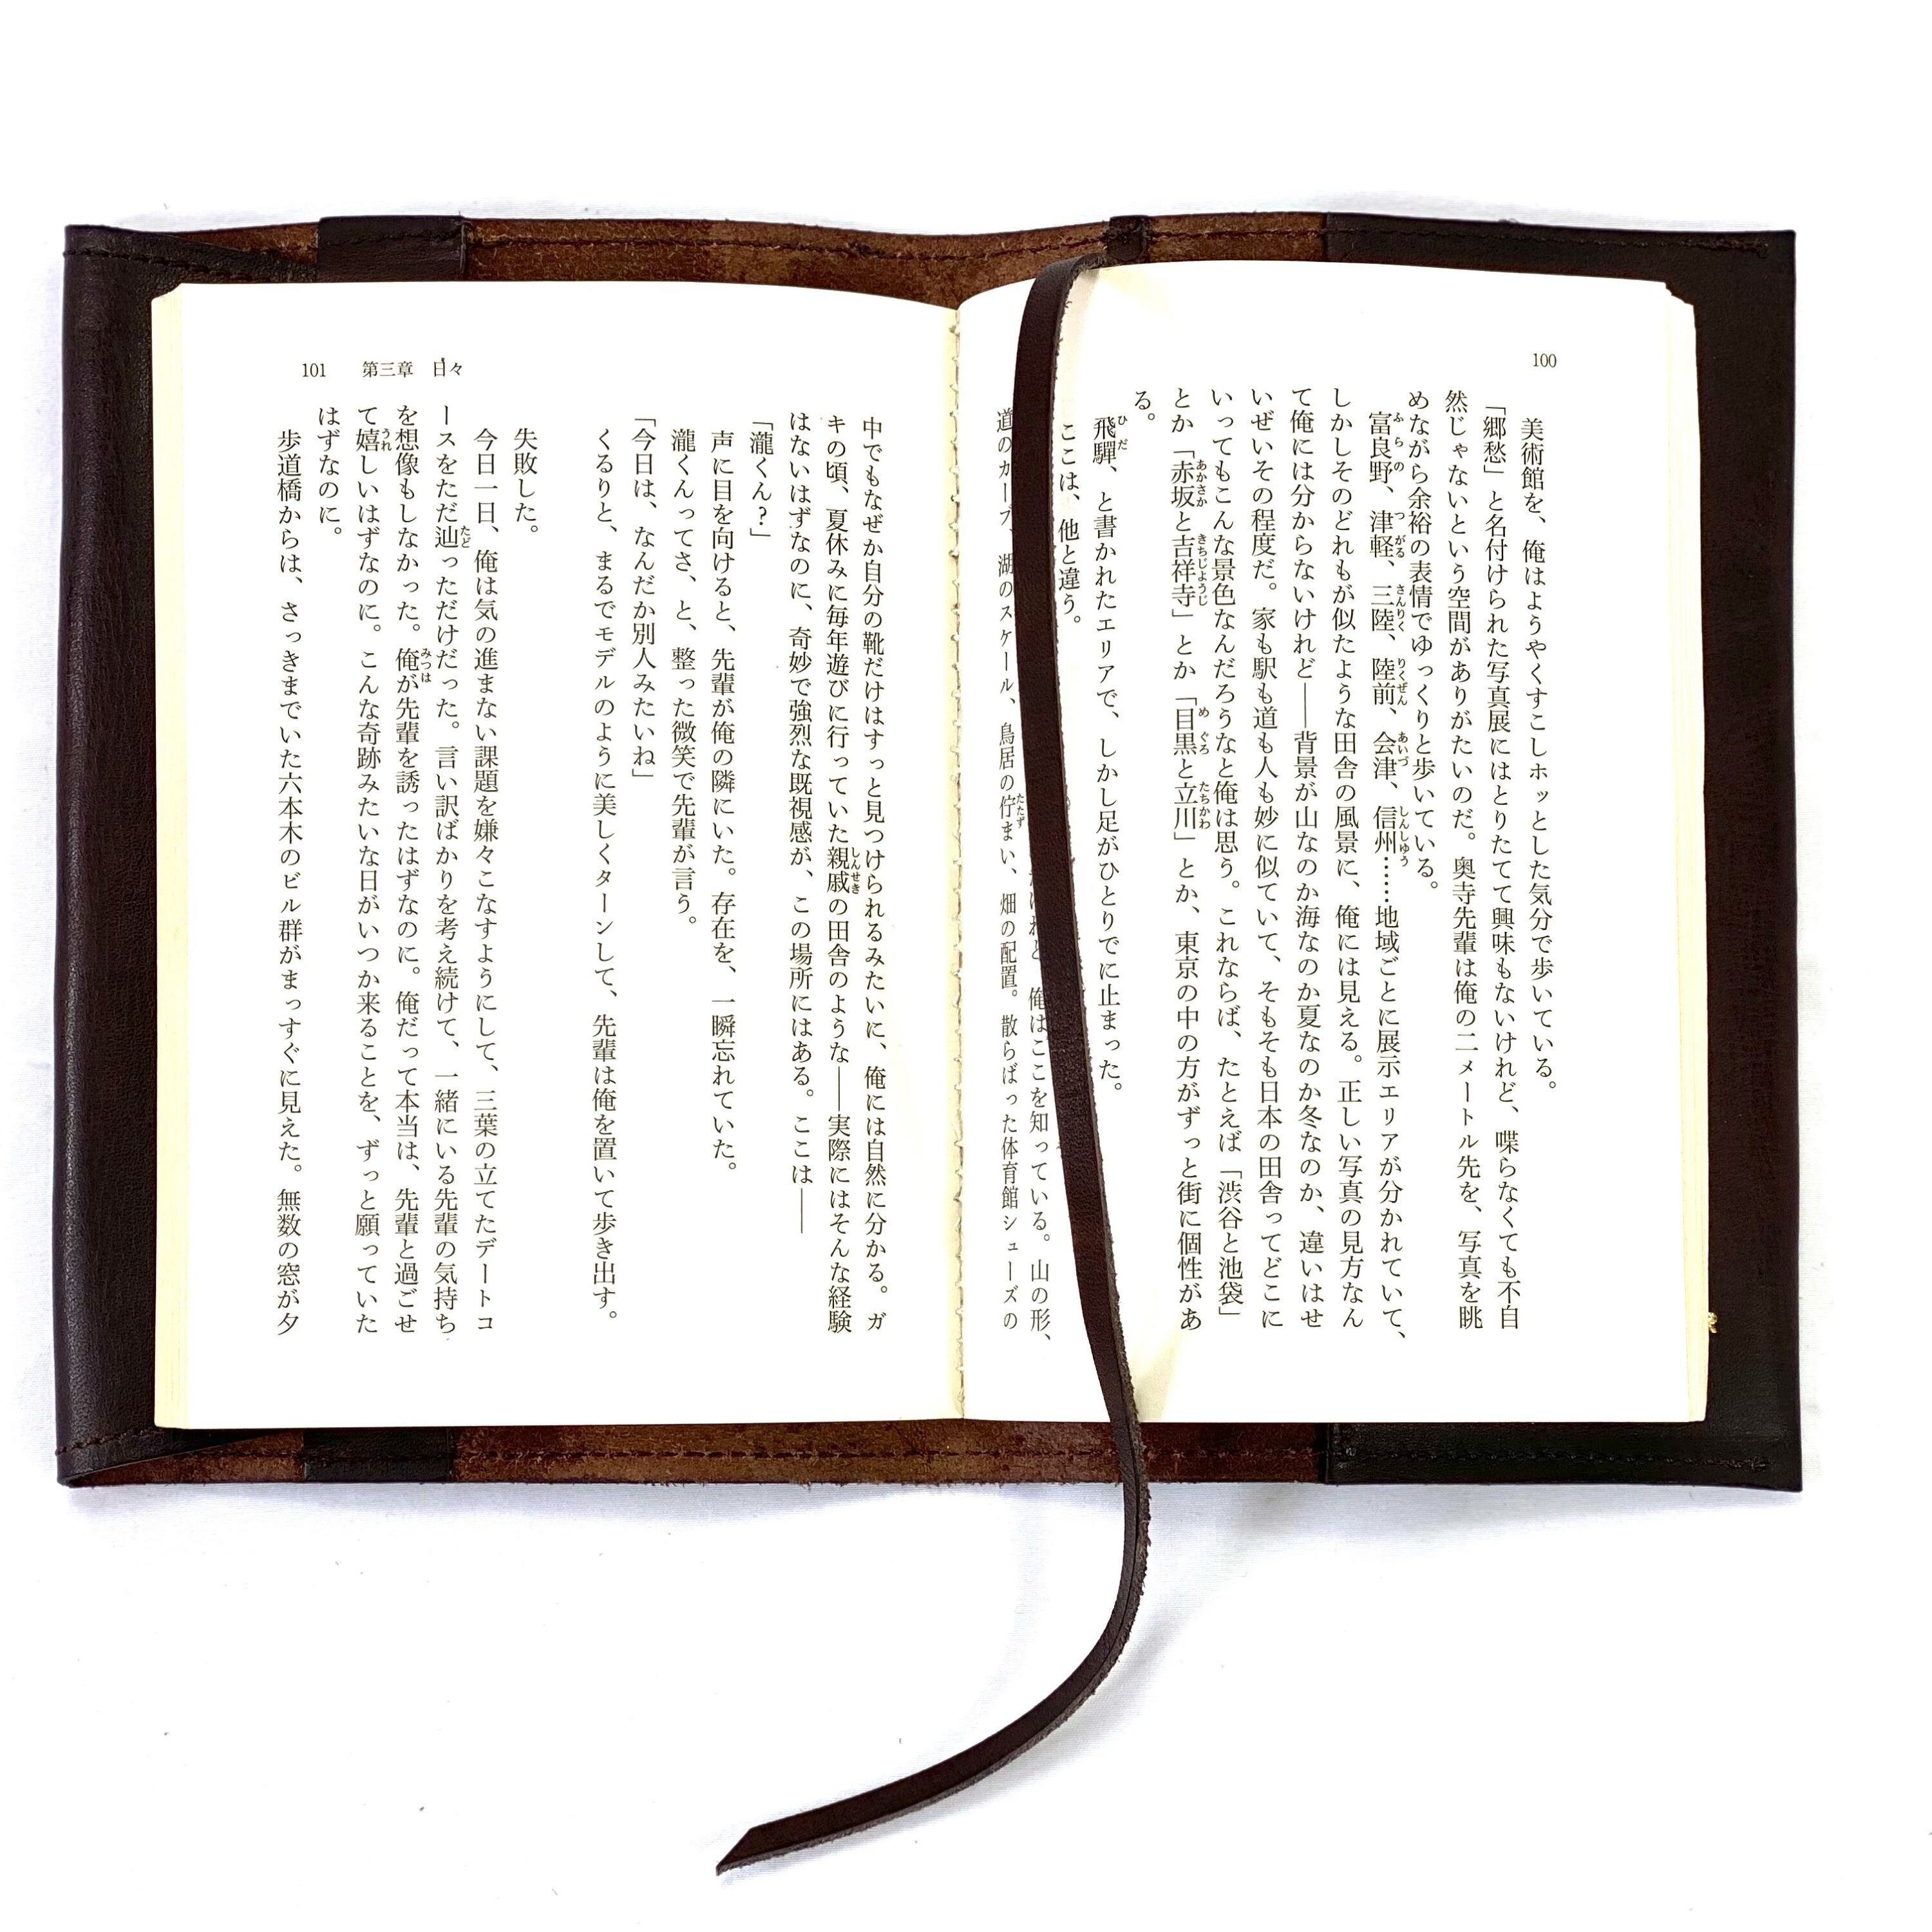 100
美術館を、俺はようやくすこしホッとした気分で歩いている。
「郷愁」と名付けられた写真展にはとりたてて興味もないけれど、喋らなくても不自
然じゃないという空間がありがたいのだ。奥寺先輩は俺の二メートル先を、写真を眺
めながら余裕の表情でゆっくりと歩いている。
富良野、津軽、三陸、陸前、会津、信州……地域ごとに展示エリアが分かれていて、
しかしそのどれもが似たような田舎の風景に、俺には見える。正しい写真の見方なん
て俺には分からないけれど――背景が山なのか海なのか夏なのか冬なのか、違いはせ
いぜいその程度だ。家も駅も道も人も妙に似ていて、そもそも日本の田舎ってどこに
いってもこんな景色なんだろうなと俺は思う。これならば、たとえば「渋谷と池袋」
とか「赤坂と吉祥寺」とか「目黒と立川」とか、東京の中の方がずっと街に個性があ
る。
飛驒、と書かれたエリアで、しかし足がひとりでに止まった。
ここは、他と違う。
俺はここを知っている。山の形、
道のカーブ、湖のスケール、鳥居の佇まい、畑の配置。散らばった体育館シューズの
101 第三章 日々
中でもなぜか自分の靴だけはすっと見つけられるみたいに、俺には自然に分かる。ガ
キの頃、夏休みに毎年遊びに行っていた親戚の田舎のような――実際にはそんな経験
はないはずなのに、奇妙で強烈な既視感が、この場所にはある。ここは――
「瀧くん？」
声に目を向けると、先輩が俺の隣にいた。存在を、一瞬忘れていた。
瀧くんってさ、と、整った微笑で先輩が言う。
「今日は、なんだか別人みたいね」
くるりと、まるでモデルのように美しくターンして、先輩は俺を置いて歩き出す。
失敗した。
今日一日、俺は気の進まない課題を嫌々こなすようにして、三葉の立てたデートコ
ースをただ辿っただけだった。言い訳ばかりを考え続けて、一緒にいる先輩の気持ち
を想像もしなかった。俺が先輩を誘ったはずなのに。俺だって本当は、先輩と過ごせ
て嬉しいはずなのに。こんな奇跡みたいな日がいつか来ることを、ずっと願っていた
はずなのに。
歩道橋からは、さっきまでいた六本木のビル群がまっすぐに見えた。無数の窓が夕